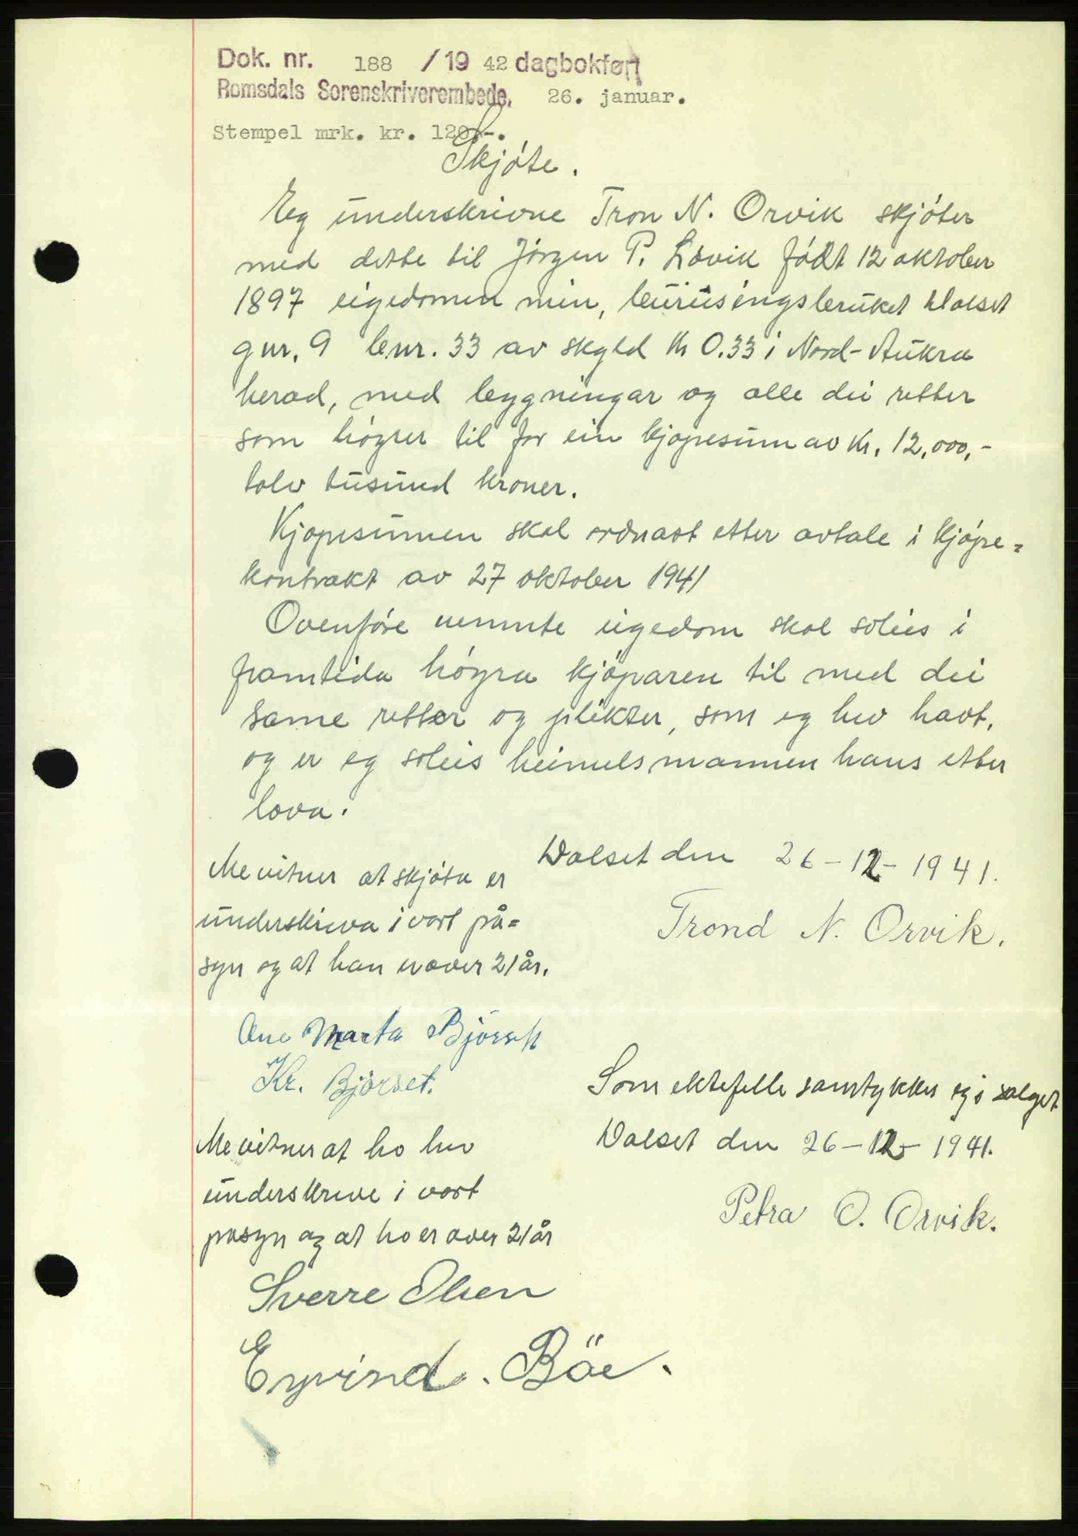 Dok. nr. 188 /19 42 dagbokført
Romsdals Sorenskriverembede, 26. januar.
Stempel mrk. kr. 120,-.
Skjøte.
Eg underskrivne Tron N. Orvik skjøter
med dette til Jörgen P. Løvik født 12 oktober
1897 eigedomen min, bureisingsbruket Dalset
gnr. 9 bnr. 33 av skyld Kr 0.33 i Nord-Aukra
herad, med bygningar og alle dei retter
som høyrer til for ein kjøpesum av Kr. 12,000,-
tolv tusund kroner.
Kjøpesummen skal ordnast etter avtale i kjøpe=
kontrakt av 27 oktober 1941
Ovenføre nemnte eigedom skal soleis i
framtida høyra kjøparen til med dei
same retter og plikter, som eg hev havt,
og er eg soleis heimelsmannen hans etter
lova.
Dalset den 26-12-1941.
Trond N. Orvik.
Me vitner at skjøta er
underskriva i vort på=
syn og at han er over 21 år.
Ane Marta Bjørset
Kr. Bjørset.
Som ektefelle samtykker eg i salget
Dalset den 26-12-1941.
Petra O. Orvik.
Me vitner at ho hev
underskreve i vort
påsyn og at ho er over 21 år
Sverre Olsen
Eyvind. Böe.